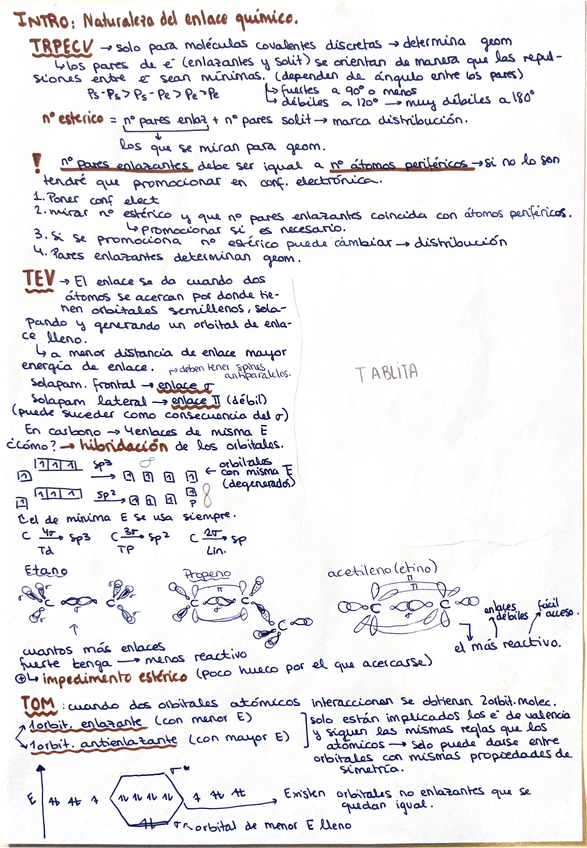 INTRO: Naturaleza del enlace químico.
TRPECV → solo para moléculas covalentes discretas → determina geom
↳ los pares de e⁻ (enlazantes y solit) se orientan de manera que las repul-
siones entre e⁻ sean mínimas. (dependen de ángulo entre los pares)
Ps-Ps > Ps-Pe > Pe > Pe
↳ fuertes a 90° o menos
↳ débiles a 120° → muy débiles a 180°
nº estérico = nº pares enlaz + nº pares solit → marca distribución.
los que se miran para geom.
! nº pares enlazantes debe ser igual a nº átomos periféricos → si no lo son
tendré que promocionar en conf. electrónica.
1. Poner conf elect
2. mirar nº estérico y que nº pares enlazantes coincida con átomos periféricos.
↳ promocionar si es necesario.
3. Si se promociona nº estérico puede cambiar → distribución
4. Pares enlazantes determinan geom.
TEV → El enlace se da cuando dos
átomos se acercan por donde tie-
nen orbitales semillenos, sola-
pando y generando un orbital de enla-
ce lleno.
↳ a menor distancia de enlace mayor
energía de enlace. → deben tener spines
antiparalelos.
Solapam. frontal → enlace σ
Solapam lateral → enlace π (débil)
(puede suceder como consecuencia del σ)
En carbono → 4 enlaces de misma E
¿Cómo? → hibridación de los orbitales.
TABLITA
sp3
← orbitales
con misma E
(degenerados)
sp2
P
el de mínima E se usa siempre.
C 4σ→ sp3 C 3σ→ sp2 C 2σ→ sp
Td TP Lin.
Etano Propeno acetileno (etino)
C C C C C C C
π π
σ σ
enlaces débiles
fácil acceso.
el más reactivo.
cuantos más enlaces
fuerte tenga → menos reactivo
⊕ ↳ impedimento estérico (poco hueco por el que acercarse)
TOM: cuando dos orbitales atómicos interaccionan se obtienen 2 orbit. molec.
1 orbit. enlazante (con menor E)
1 orbit. antienlazante (con mayor E)
solo están implicados los e⁻ de valencia
y siguen las mismas reglas que los
atómicos → solo puede darse entre
orbitales con mismas propiedades de
simetría.
σ*
E
Existen orbitales no enlazantes que se
quedan igual.
σ → orbital de menor E lleno